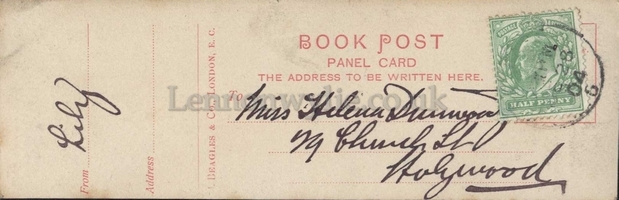 BOOK POST
PANEL CARD
THE ADDRESS TO BE WRITTEN HERE.
To
Miss Helena Dunwoody
79 Church St
Holywood
Lily
From
Address
J. BEAGLES & CO., LONDON, E. C.
HALF PENNY
Lennonwylie.co.uk
04